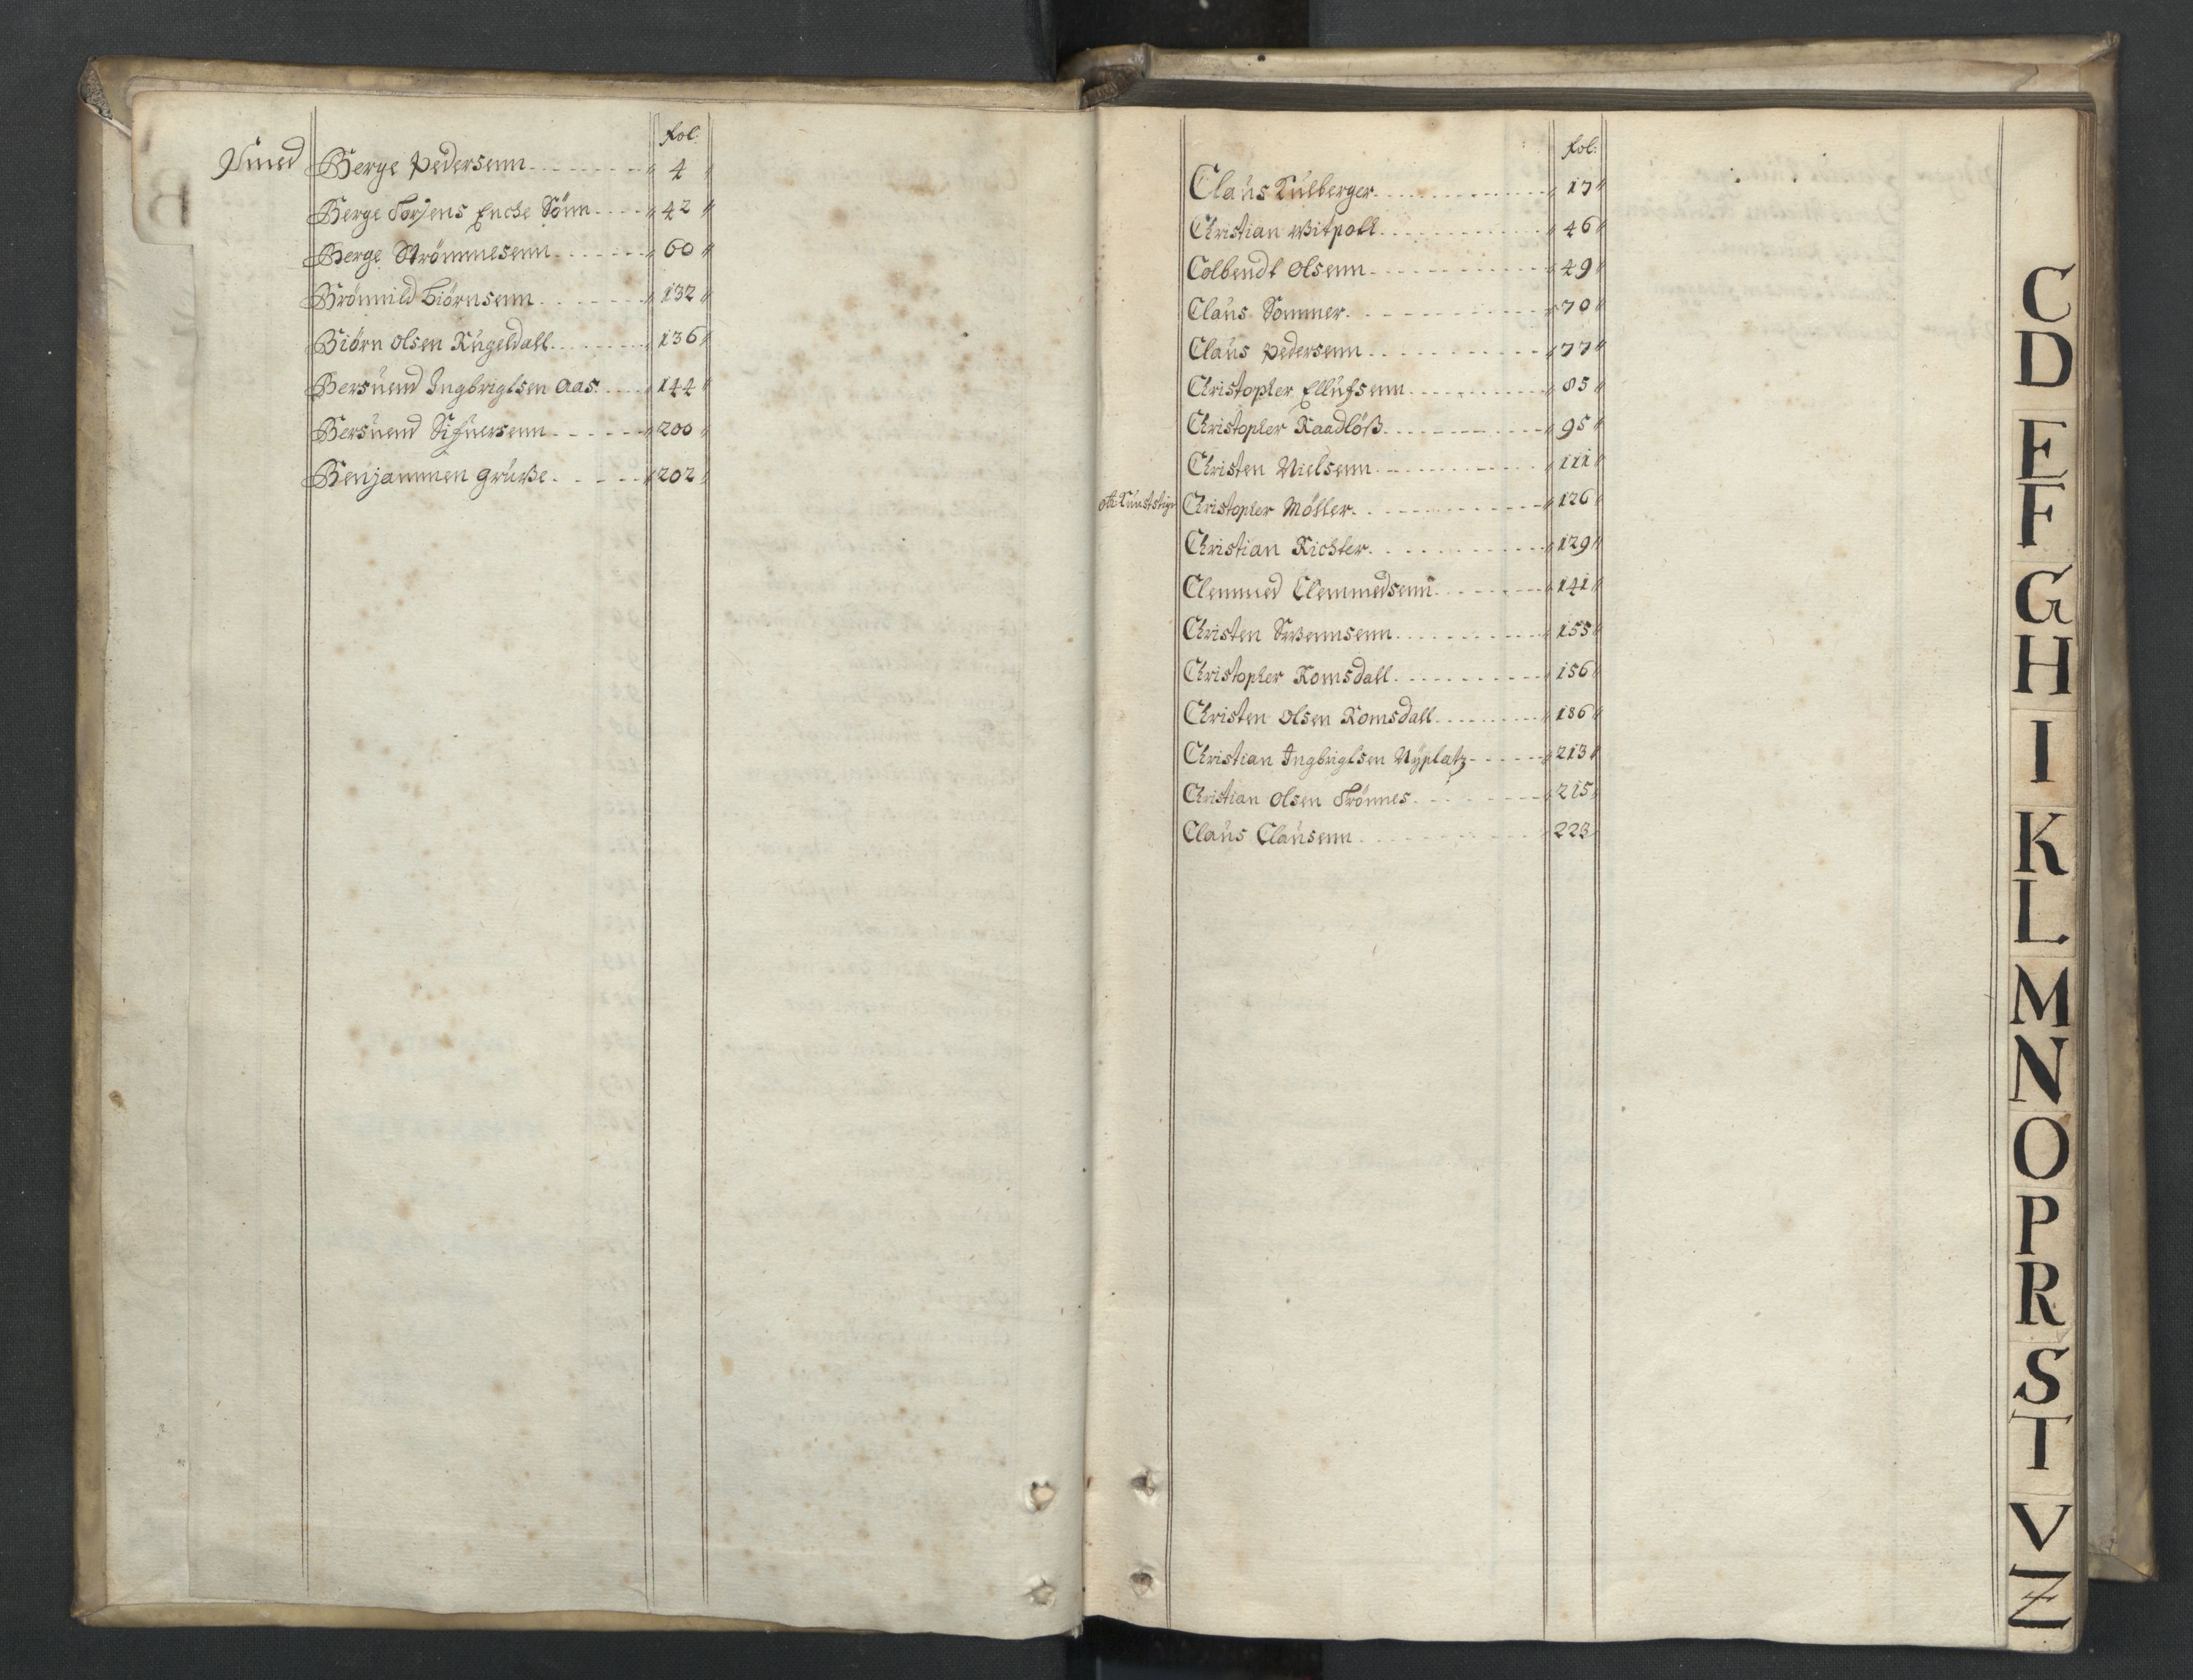 Fol:
Smed Berge Pedersenn 4
Berge Torjens Enche Sönn 42
Berge Strömmesenn 60
Brönnild Biörnsenn 132
Biörn Olsen Kugeldall 136
Bersuend Ingbriglsen Aas 144
Bersuend Sifuersenn 200
Benjammen Gruwe 202
B
Fol:
Claus Külberger 17
Christian Witpoll 46
Colbendt Olsenn 49
Claus Sommer 70
Claus Pedersenn 77
Christopher Ellufsenn 85
Christopher Raadlöß 95
Christen Nielsenn 111
Christopher Möller 126
Christian Richter 129
Clemmed Clemmedsenn 141
Christen Swennsenn 155
Christopher Romsdall 156
Christen Olsen Romsdall 186
Christian Ingbriglsen Nÿplatz 213
Christian Olsen Trönnes 215
Claus Clausenn 223
C
D
E
F
G
H
I
K
L
M
N
O
P
R
S
T
V
Z